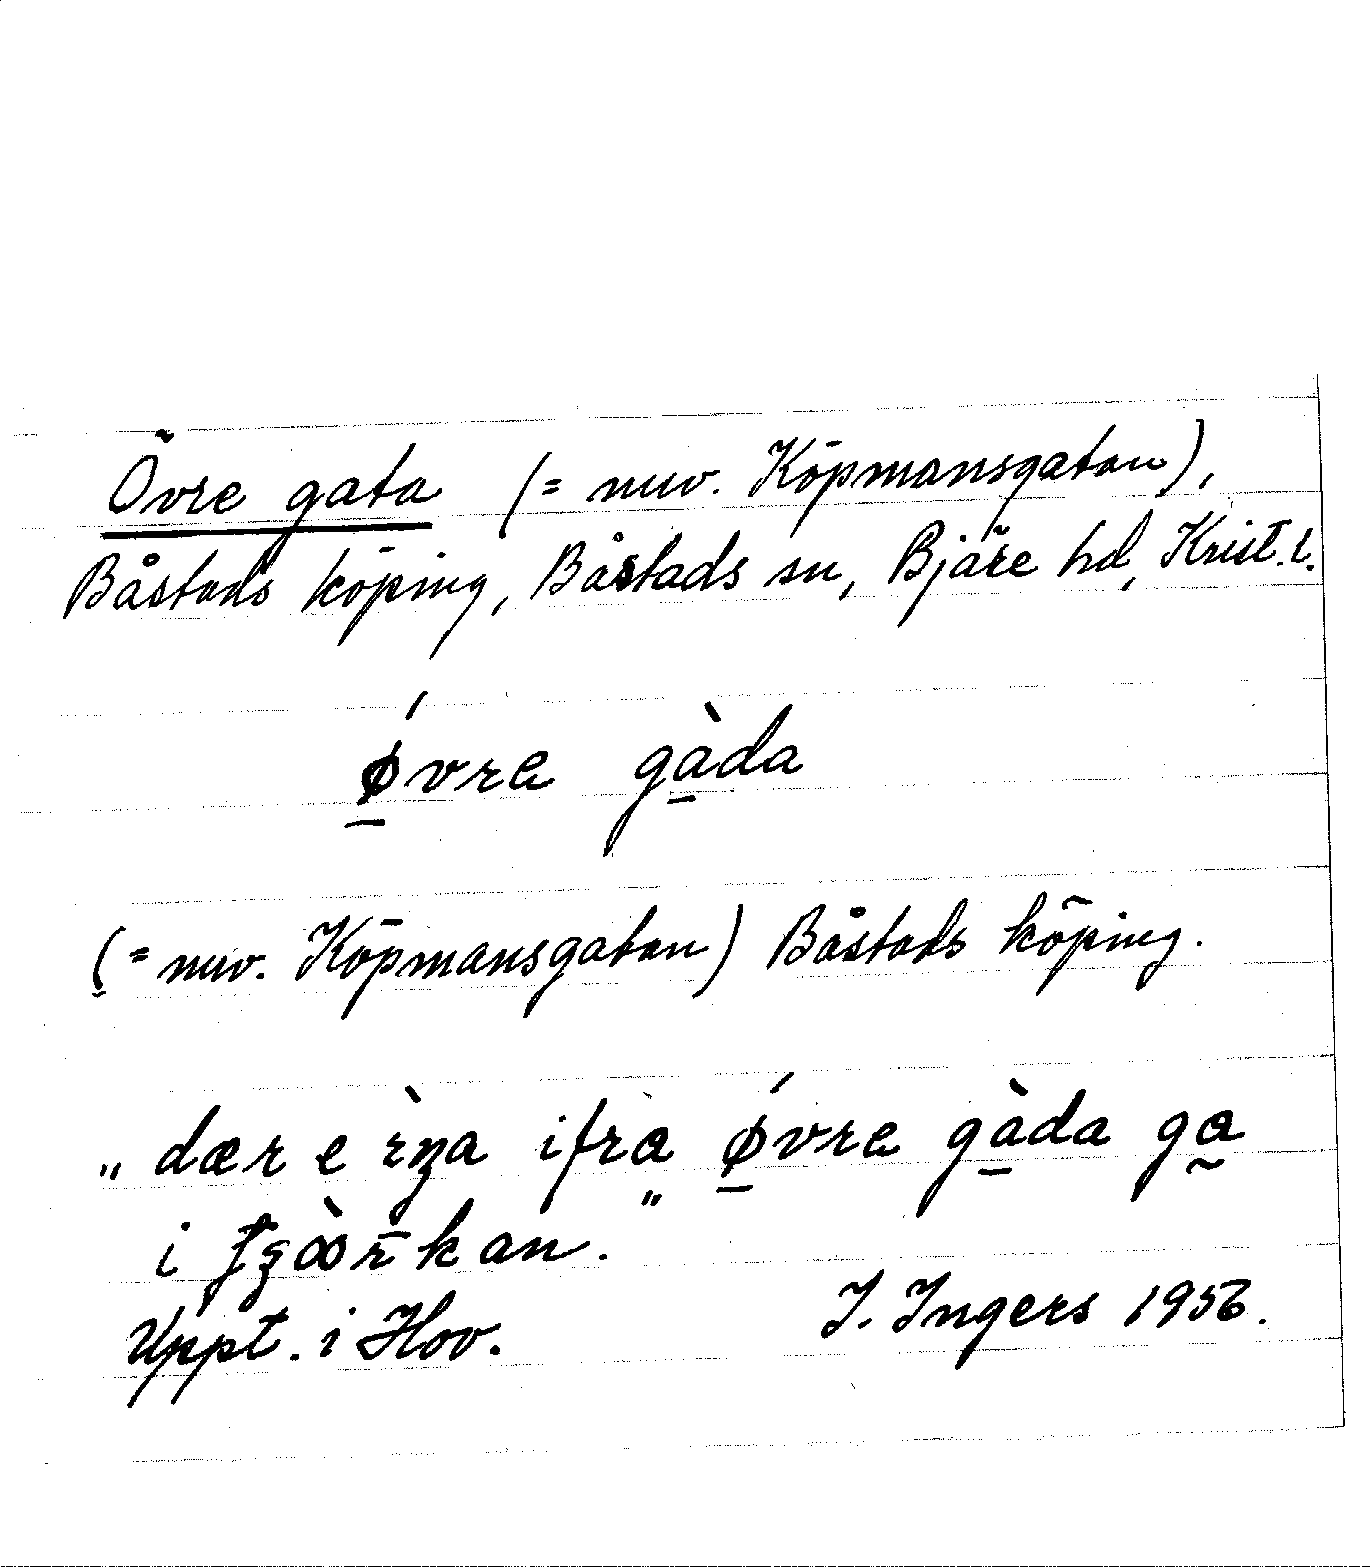 Övre gata (= nuv. Köpmansgatan),
Båstads köping, Båstads sn, Bjäre hd, Krist. l.
ǿvre gàda
(= nuv. Köpmansgatan) Båstads köping.
„dær e ifra ǿvre gàda ga
i
Uppt. i Hov. I. Ingers 1956.